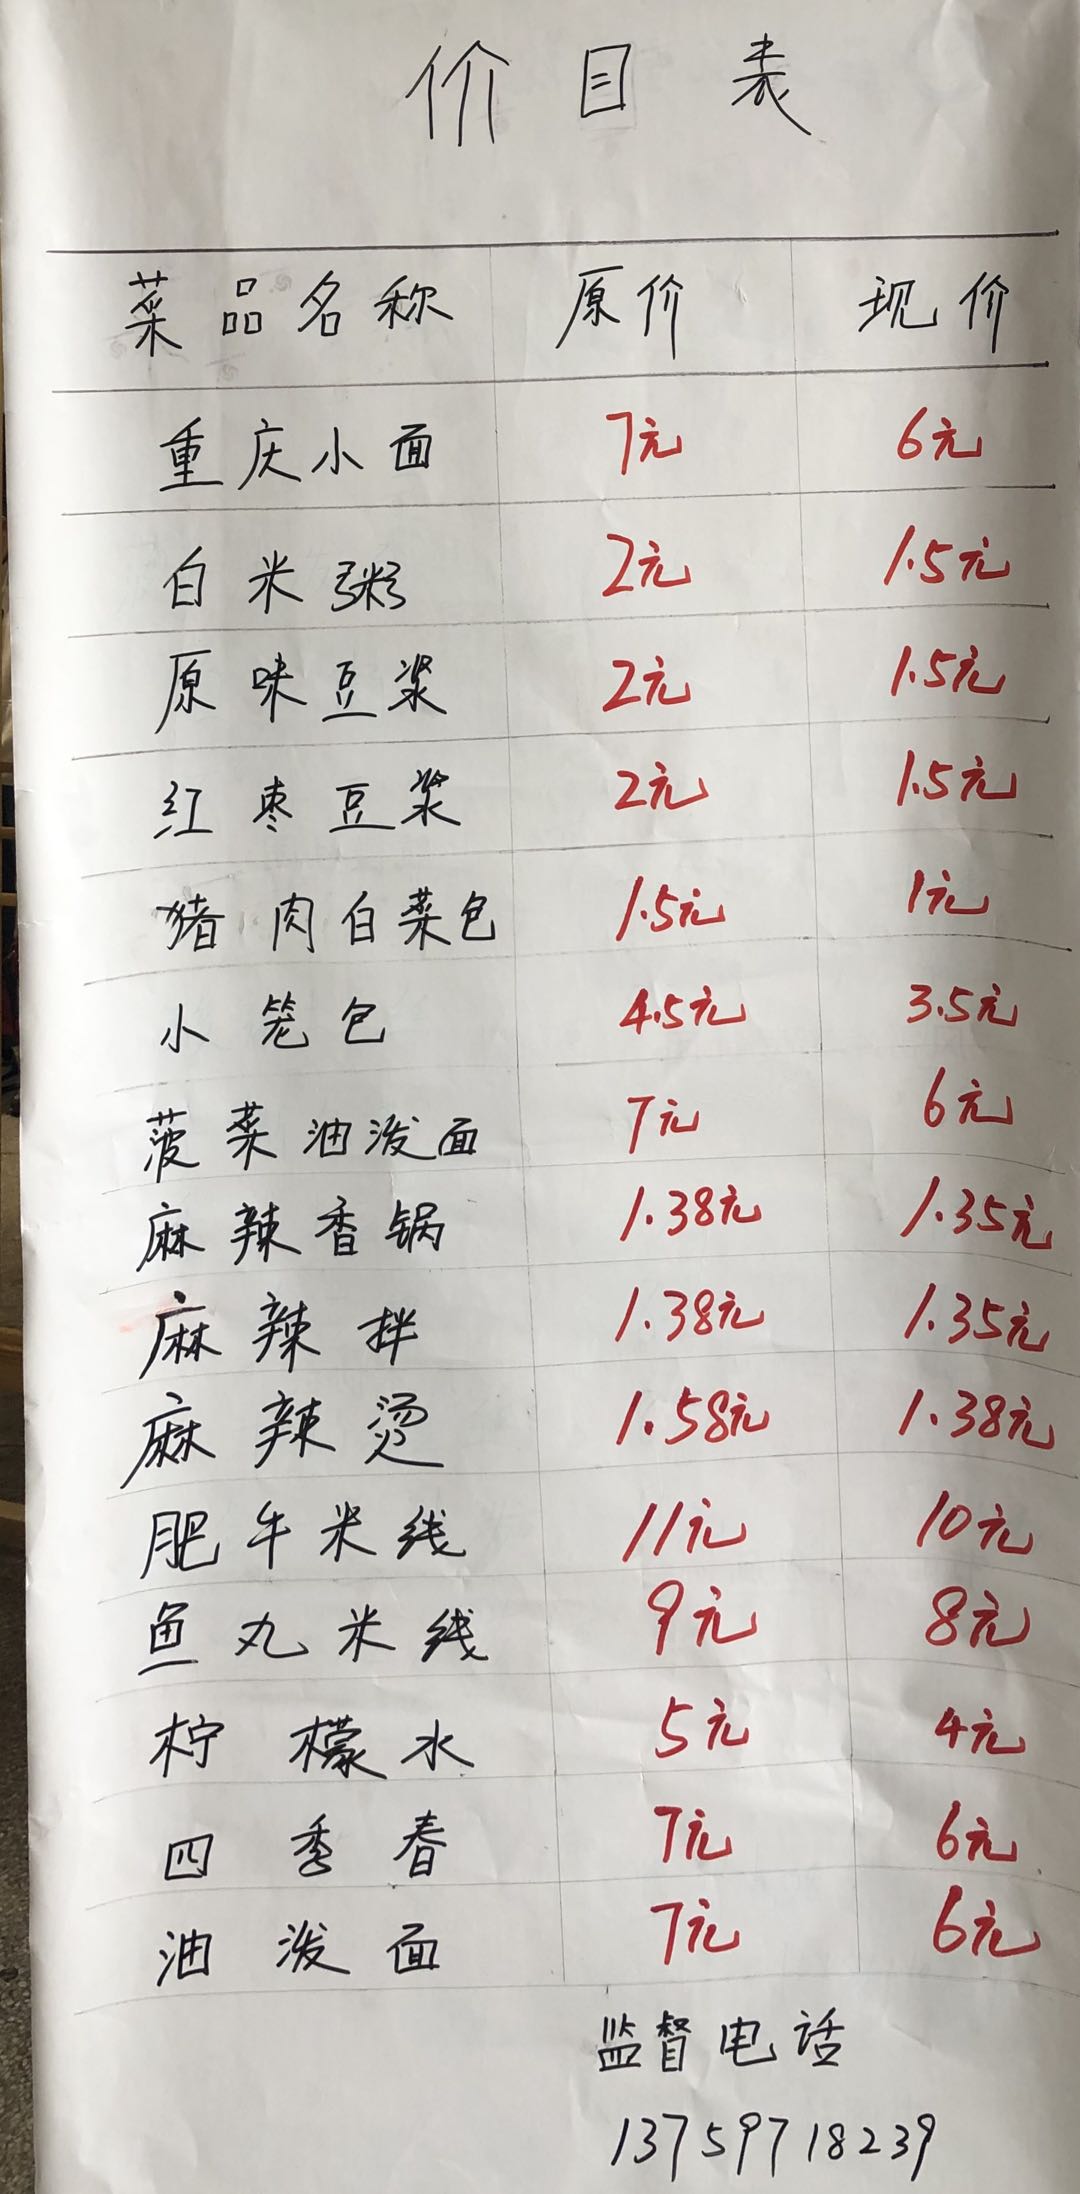 价目表
菜品名称 原价 现价
重庆小面 7元 6元
白米粥 2元 1.5元
原味豆浆 2元 1.5元
红枣豆浆 2元 1.5元
猪肉白菜包 1.5元 1元
小笼包 4.5元 3.5元
菠菜油泼面 7元 6元
麻辣香锅 1.38元 1.35元
麻辣拌 1.38元 1.35元
麻辣烫 1.58元 1.38元
肥牛米线 11元 10元
鱼丸米线 9元 8元
柠檬水 5元 4元
四季春 7元 6元
油泼面 7元 6元
监督电话
13759718239